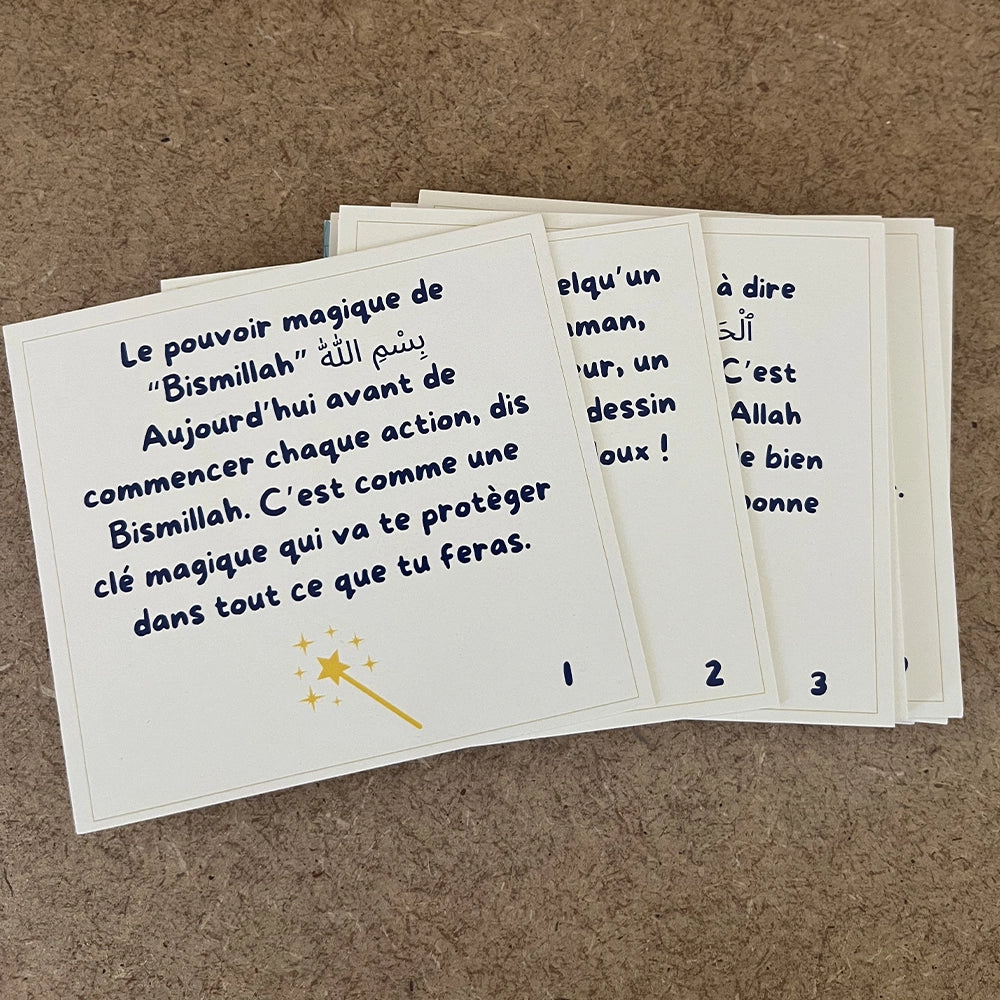 Le pouvoir magique de
“Bismillah” بِسْمِ اللّٰهِ
Aujourd'hui avant de
commencer chaque action, dis
Bismillah. C'est comme une
clé magique qui va te protèger
dans tout ce que tu feras.
1
elqu'un
man,
ur, un
dessin
oux !
2
à dire
ٱلْحَ
C'est
Allah
le bien
bonne
3